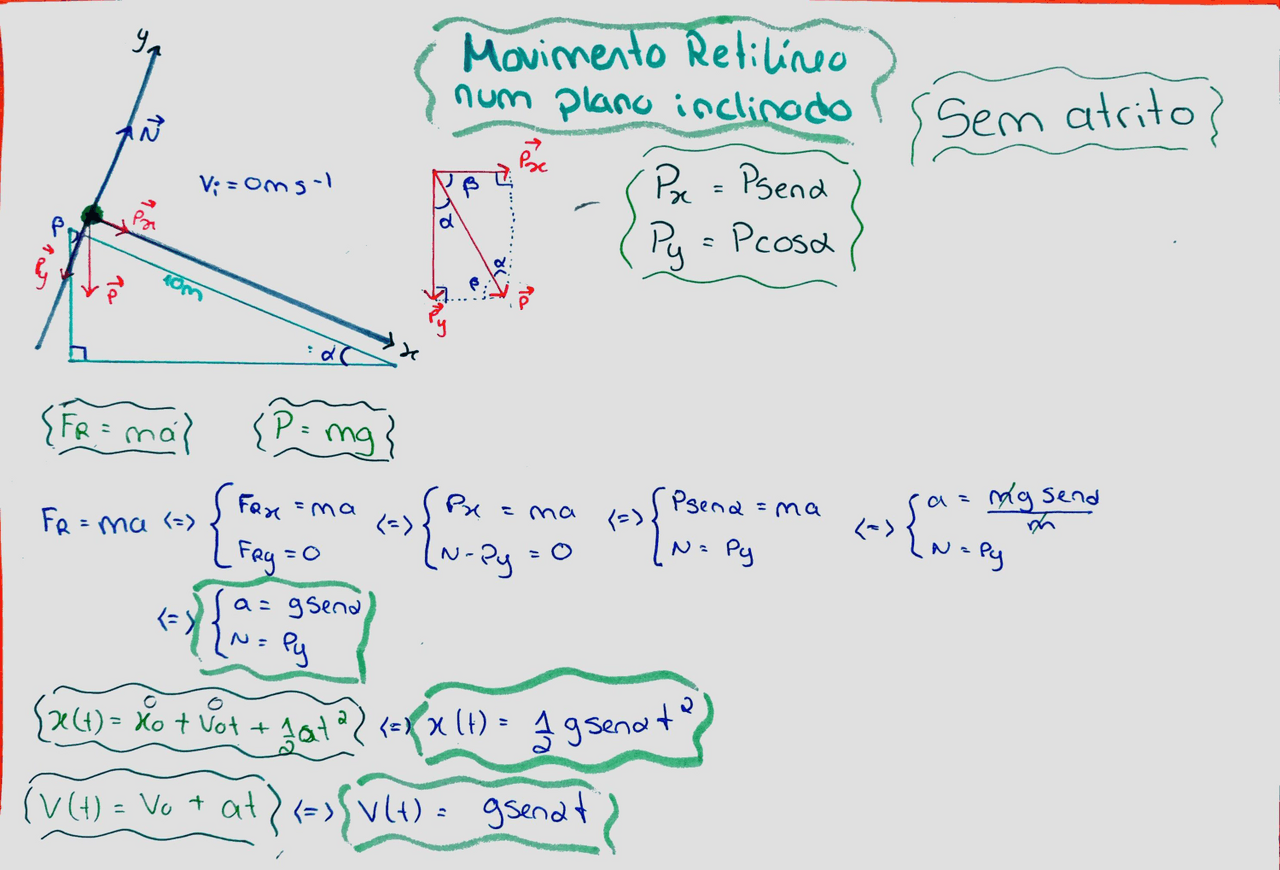 Movimento Retilíneo
num plano inclinado
Sem atrito
y
N⃗
Vi = 0 m s⁻¹
β
P⃗x
P⃗y
P⃗
10m
α
x
P⃗x
β
α
α
β
P⃗y
P⃗
Px = Psenα
Py = Pcosα
FR = ma
P = mg
FR = ma <=> { FRx = ma <=> { Px = ma <=> { Psenα = ma <=> { a = mg senα / m
FRy = 0 N - Py = 0 N = Py N = Py
<=> { a = gsenα
N = Py
0 0
x(t) = x0 + v0t + 1/2 at² <=> x(t) = 1/2 gsenα t²
V(t) = V0 + at <=> V(t) = gsenα t